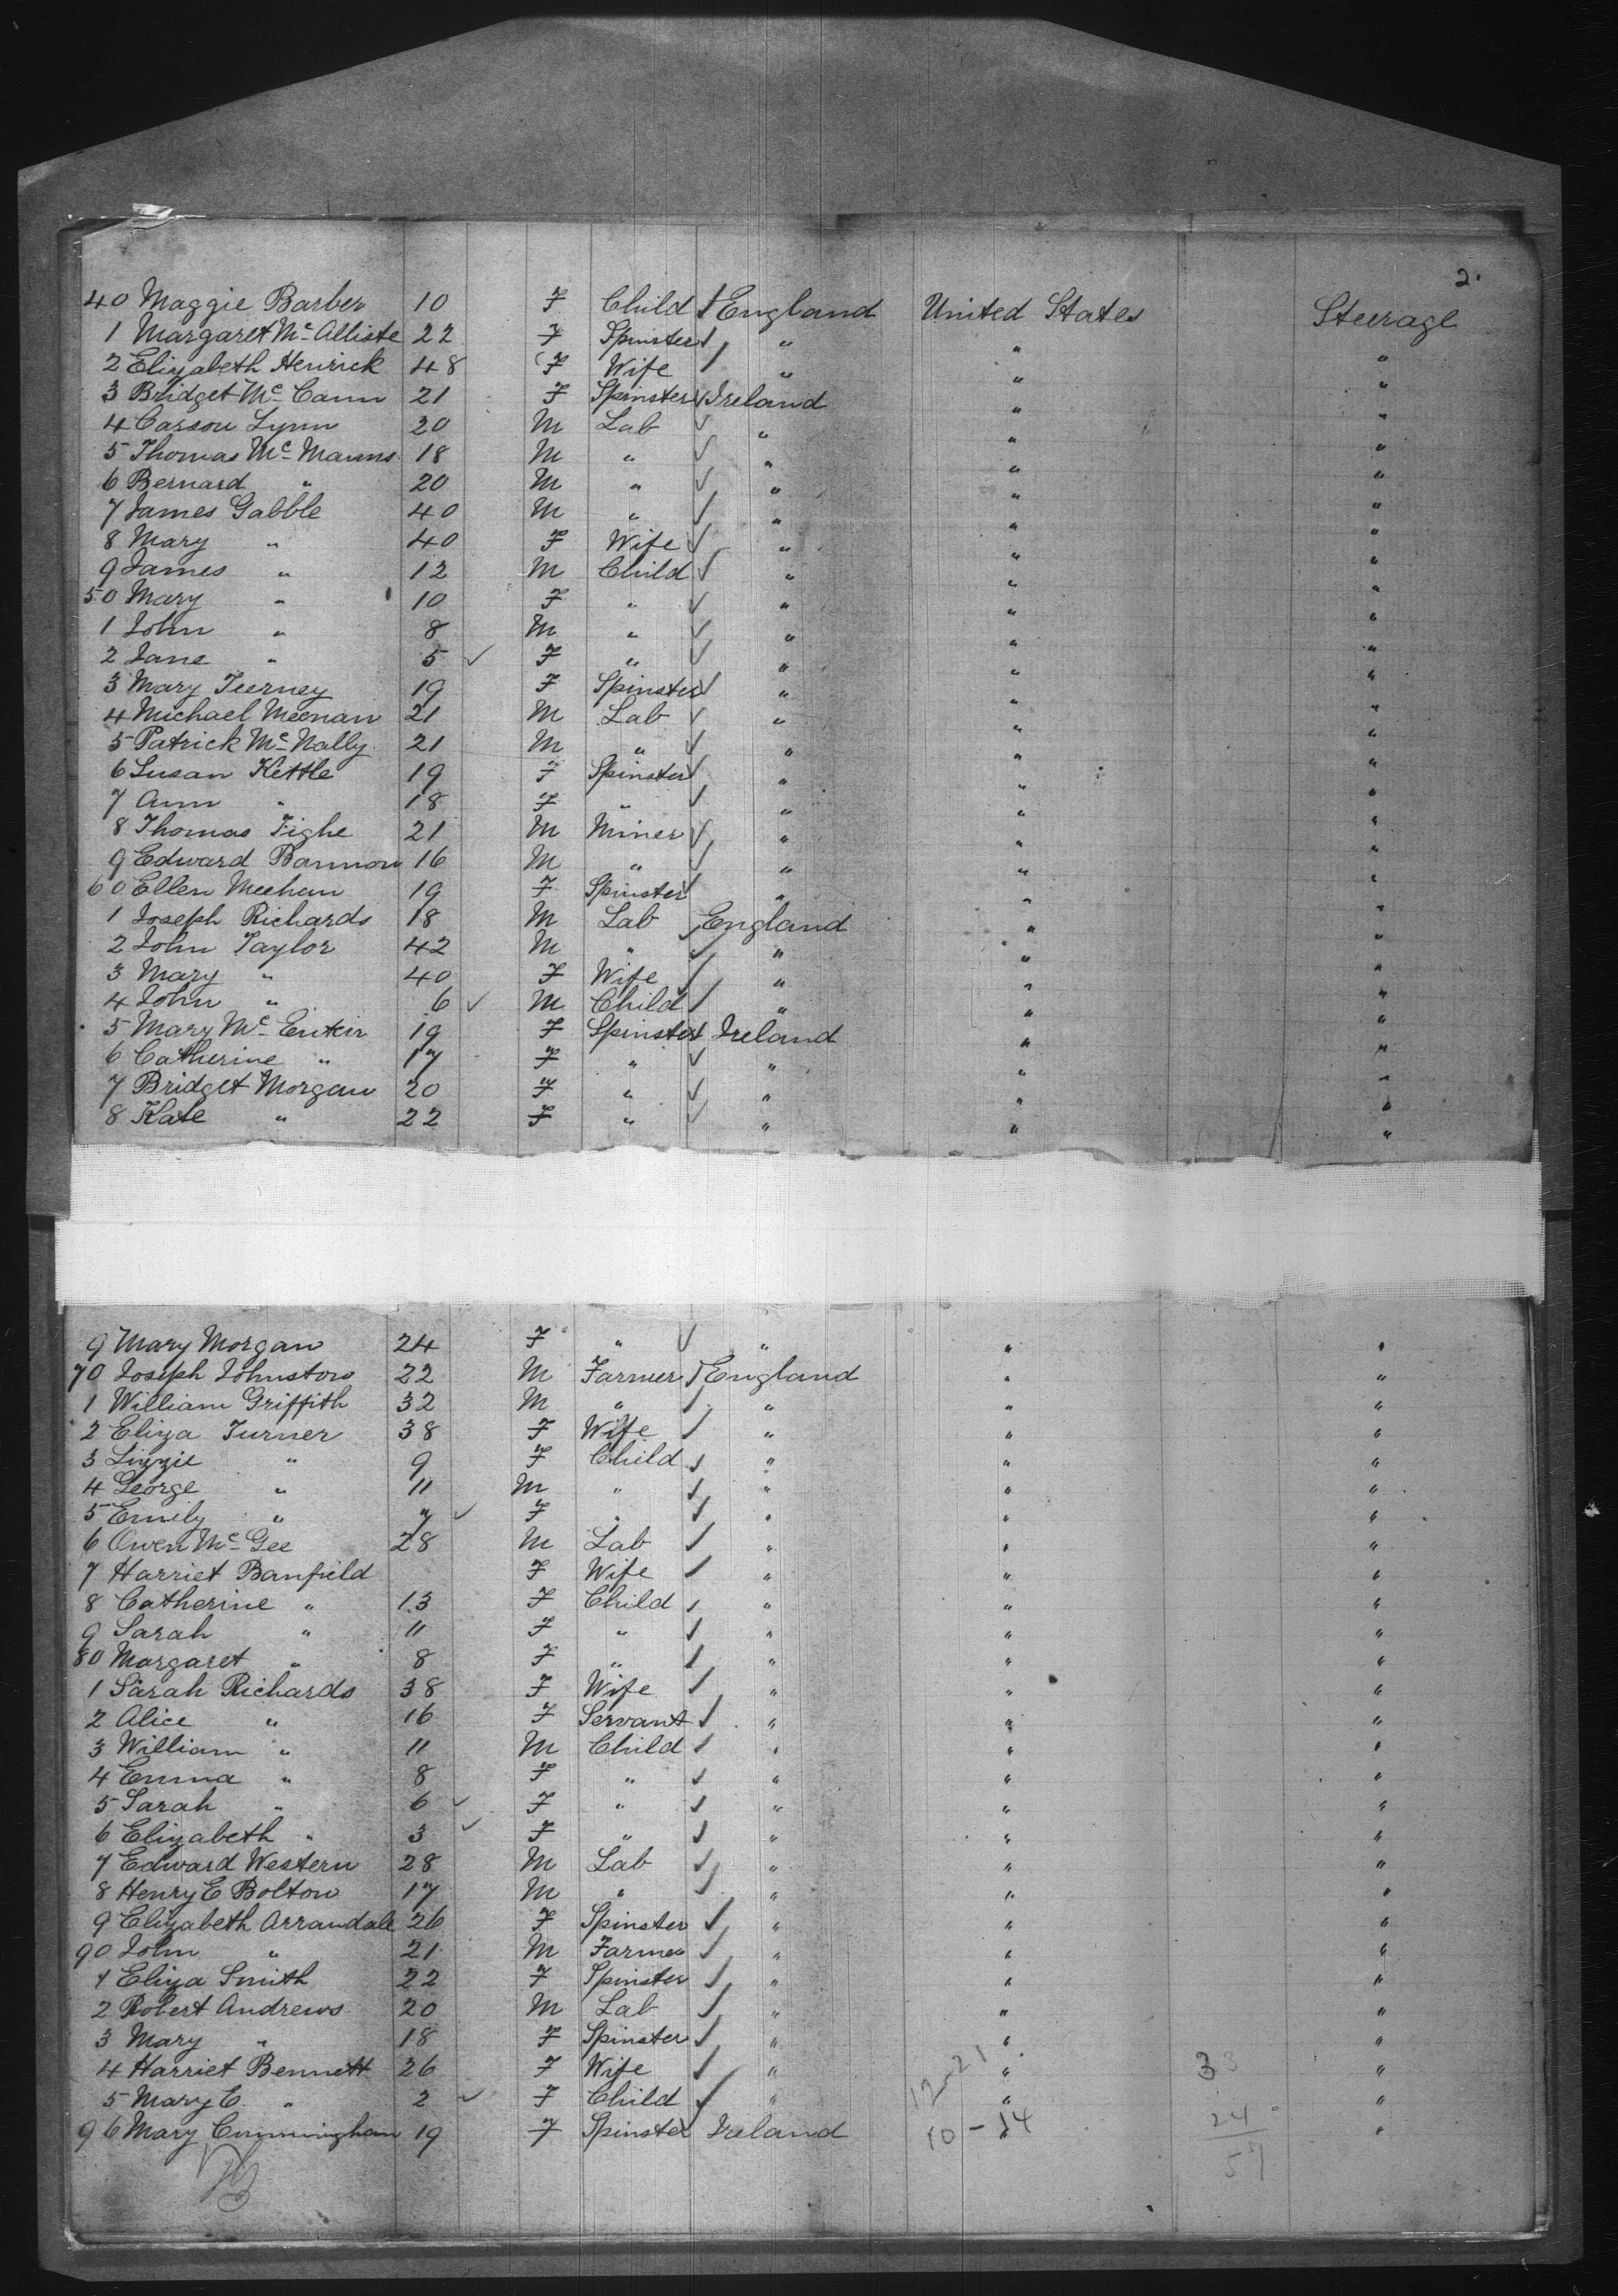 2.
40 Maggie Barber 10 F Child England United States Steerage
1 Margaret Mc Alliste 22 F Spinster " " "
2 Elizabeth Henrick 48 F Wife " " "
3 Bridget Mc Cann 21 F Spinster Ireland " "
4 Carson Lynn 20 M Lab " " "
5 Thomas Mc Manns 18 M " " " "
6 Bernard " 20 M " " " "
7 James Gabble 40 M " " " "
8 Mary " 40 F Wife " " "
9 James " 12 M Child " " "
50 Mary " 10 F " " " "
1 John " 8 M " " " "
2 Jane " 5 F " " " "
3 Mary Teerney 19 F Spinster " " "
4 Michael Meenan 21 M Lab " " "
5 Patrick Mc Nally 21 M " " " "
6 Susan Kettle 19 F Spinster " " "
7 Ann " 18 F " " " "
8 Thomas Tighe 21 M Miner " " "
9 Edward Bannon 16 M " " " "
60 Ellen Meehan 19 F Spinster " " "
1 Joseph Richards 18 M Lab England " "
2 John Taylor 42 M " " " "
3 Mary " 40 F Wife " " "
4 John " 6 M Child " " "
5 Mary Mc Enteir 19 F Spinster Ireland " "
6 Catherine " 17 F " " " "
7 Bridget Morgan 20 F " " " "
8 Kate " 22 F " " " "
9 Mary Morgan 24 F " " " "
70 Joseph Johnston 22 M Farmer England " "
1 William Griffith 32 M " " " "
2 Eliza Turner 38 F Wife " " "
3 Lizzie " 9 F Child " " "
4 George " 11 M " " " "
5 Emily " 7 F " " " "
6 Owen Mc Gee 28 M Lab " " "
7 Harriet Banfield F Wife " " "
8 Catherine " 13 F Child " " "
9 Sarah " 11 F " " " "
80 Margaret " 8 F " " " "
1 Sarah Richards 38 F Wife " " "
2 Alice " 16 F Servant " " "
3 William " 11 M Child " " "
4 Emma " 8 F " " " "
5 Sarah " 6 F " " " "
6 Elizabeth " 3 F " " " "
7 Edward Western 28 M Lab " " "
8 Henry E Bolton 17 M " " " "
9 Elizabeth Arrandale 26 F Spinster " " "
90 John " 21 M Farmer " " "
1 Eliza Smith 22 F Spinster " " "
2 Robert Andrews 20 M Lab " " "
3 Mary " 18 F Spinster " " "
4 Harriet Bennett 26 F Wife " 12-21 " 33 "
5 Mary E. " 2 F Child " " "
96 Mary Cunningham 19 F Spinster Ireland 10-14 " 24 "
57